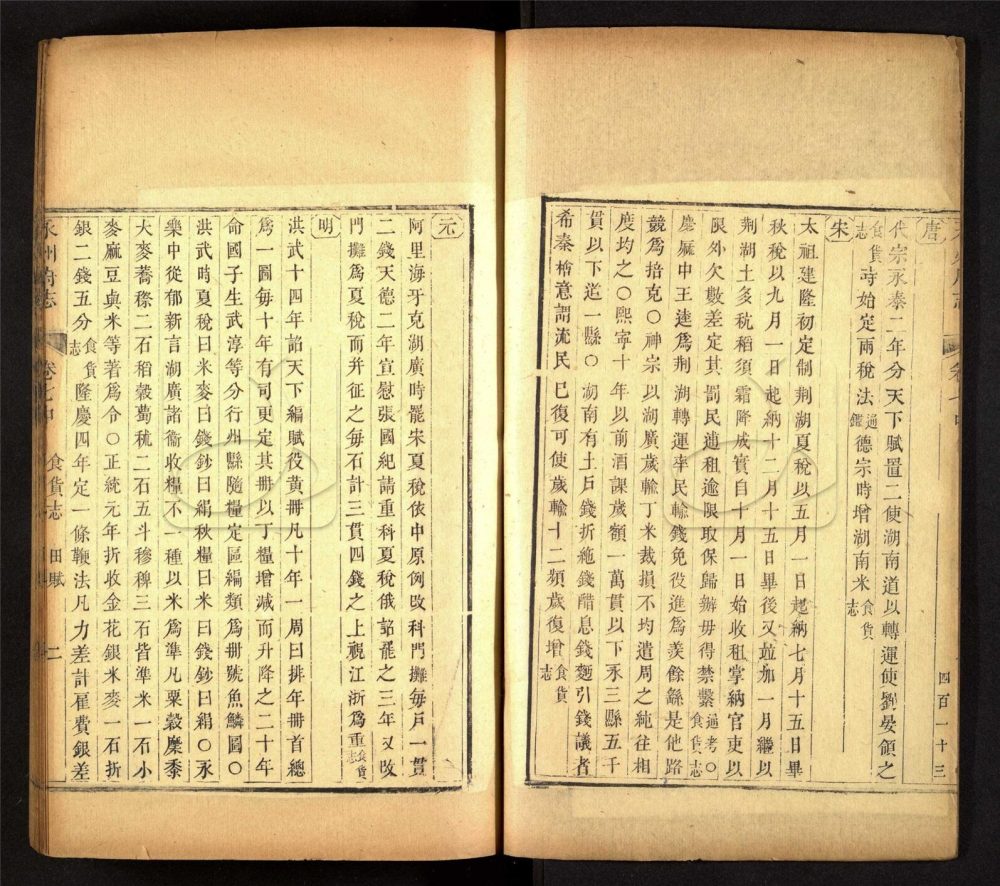 唐
代宗永泰二年分天下賦置二使湖南道以轉運使劉晏領之
食貨志時始定兩稅法通鑑德宗時增湖南米食貨志
宋
太祖建隆初定制荆湖夏稅以五月一日起納七月十五日畢
秋稅以九月一日起納十二月十五日畢後又並加一月繼以
荆湖土多秔稻須霜降成實自十月一日始收租掌納官吏以
限外欠數差定其罰民逋租逾限取保歸辦毋得禁繫通考○食貨志
慶厤中王逵爲荆湖轉運率民輸錢免役進爲羨餘繇是他路
競爲掊克○神宗以湖廣歲輸丁米裁損不均遣周之純往相
度均之○熙寧十年以前酒課歲額一萬貫以下永三縣五千
貫以下道一縣○湖南有土戶錢折絁錢醋息錢麯引錢議者
希秦檜意謂流民已復可使歲輸十二頻歲復增食貨志
四百一十三
元
阿里海牙克湖廣時罷宋夏稅依中原例改科門攤每戶一貫
二錢天德二年宣慰張國紀請重科夏稅俄詔罷之三年又改
門攤爲夏稅而并征之每石計三貫四錢之上視江浙爲重食貨志
明
洪武十四年詔天下編賦役黃冊凡十年一周曰排年冊首總
爲一圖每十年有司更定其冊以丁糧增減而升降之二十年
命國子生武淳等分行州縣隨糧定區編類爲冊號魚鱗圖○
洪武時夏稅曰米麥曰錢鈔曰絹秋糧曰米曰錢鈔曰絹○永
樂中從郁新言湖廣諸衞收糧不一種以米爲準凡粟穀糜黍
大麥蕎穄二石稻穀薥秫二石五斗穇稗三石皆準米一石小
麥麻豆與米等著爲令○正統元年折收金花銀米麥一石折
銀二錢五分食貨志隆慶四年定一條鞭法凡力差計雇費銀差
永州府志 卷七中 食貨志 田賦 二